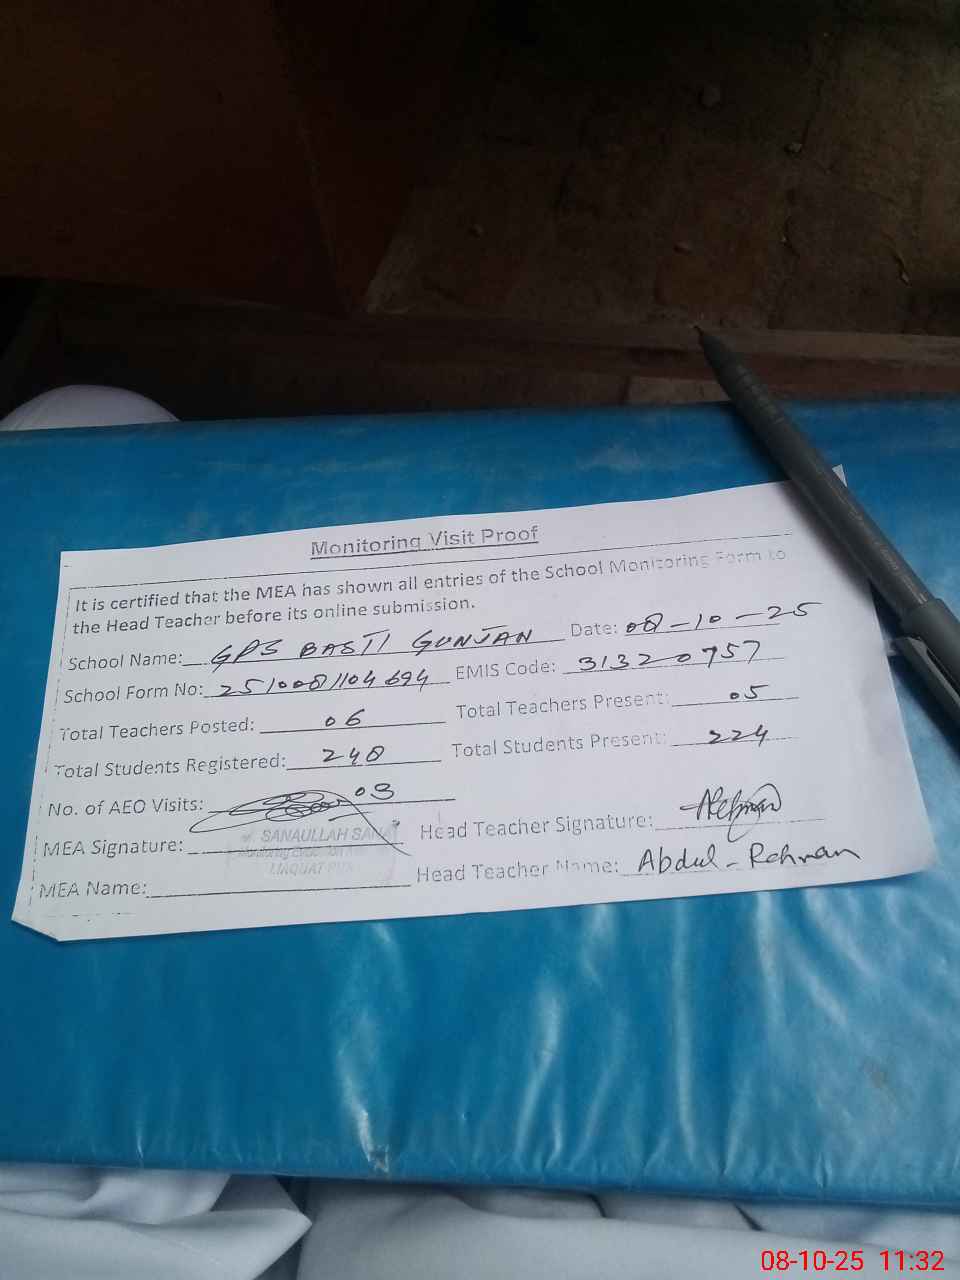 Monitoring Visit Proof
It is certified that the MEA has shown all entries of the School Monitoring Form to
the Head Teacher before its online submission.
School Name: GPS BASTI GUNJAN Date: 08-10-25
School Form No: 2510081104694 EMIS Code: 31320757
Total Teachers Posted: 06 Total Teachers Present: 05
Total Students Registered: 248 Total Students Present: 224
No. of AEO Visits: 03
MEA Signature: Head Teacher Signature: ARehman
SANAULLAH SANA
LIAQUAT PUR
MEA Name: Head Teacher Name: Abdul-Rehman
08-10-25 11:32